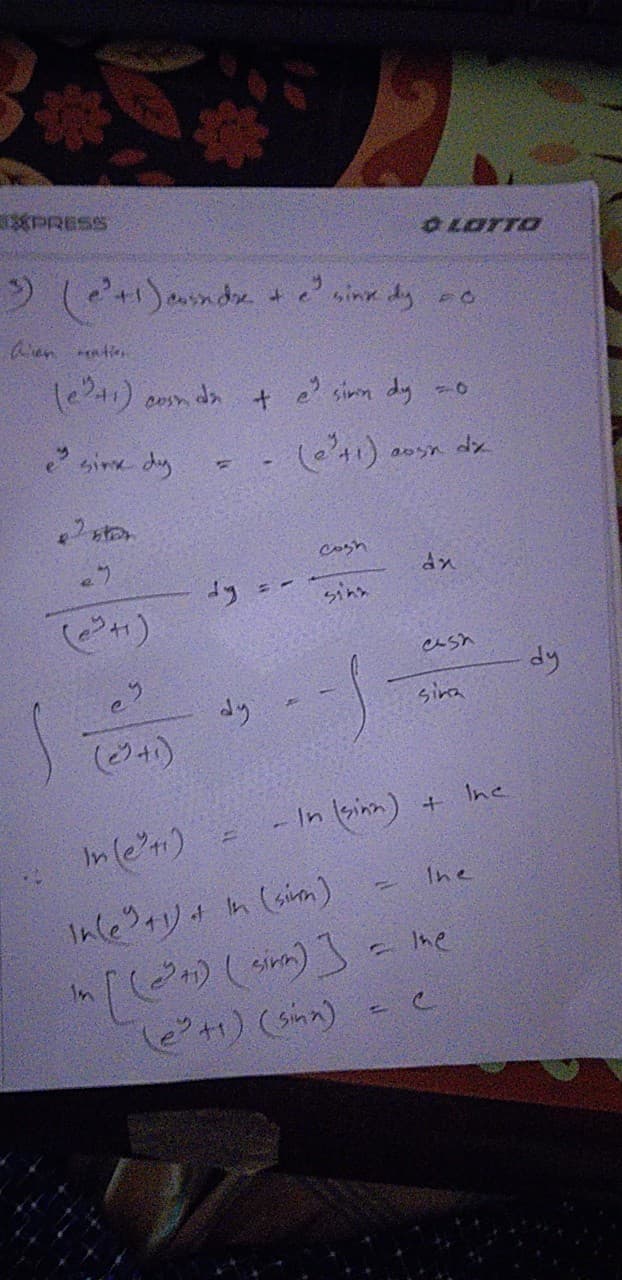 EXPRESS LOTTO
3) (e^y+1) cosx dx + e^y sinx dy = 0
Given
(e^y+1) cosx dx + e^y sinx dy = 0
e^y sinx dy = - (e^y+1) cosx dx
e^y
e^y / (e^y+1) dy = - cosx / sinx dx
∫ e^y / (e^y+1) dy = - ∫ cosx / sinx dy
∴ ln(e^y+1) = - ln (sinx) + lnc
ln(e^y+1) + ln (sinx) = lnc
ln [(e^y+1) (sinx)] = lnc
(e^y+1) (sinx) = c